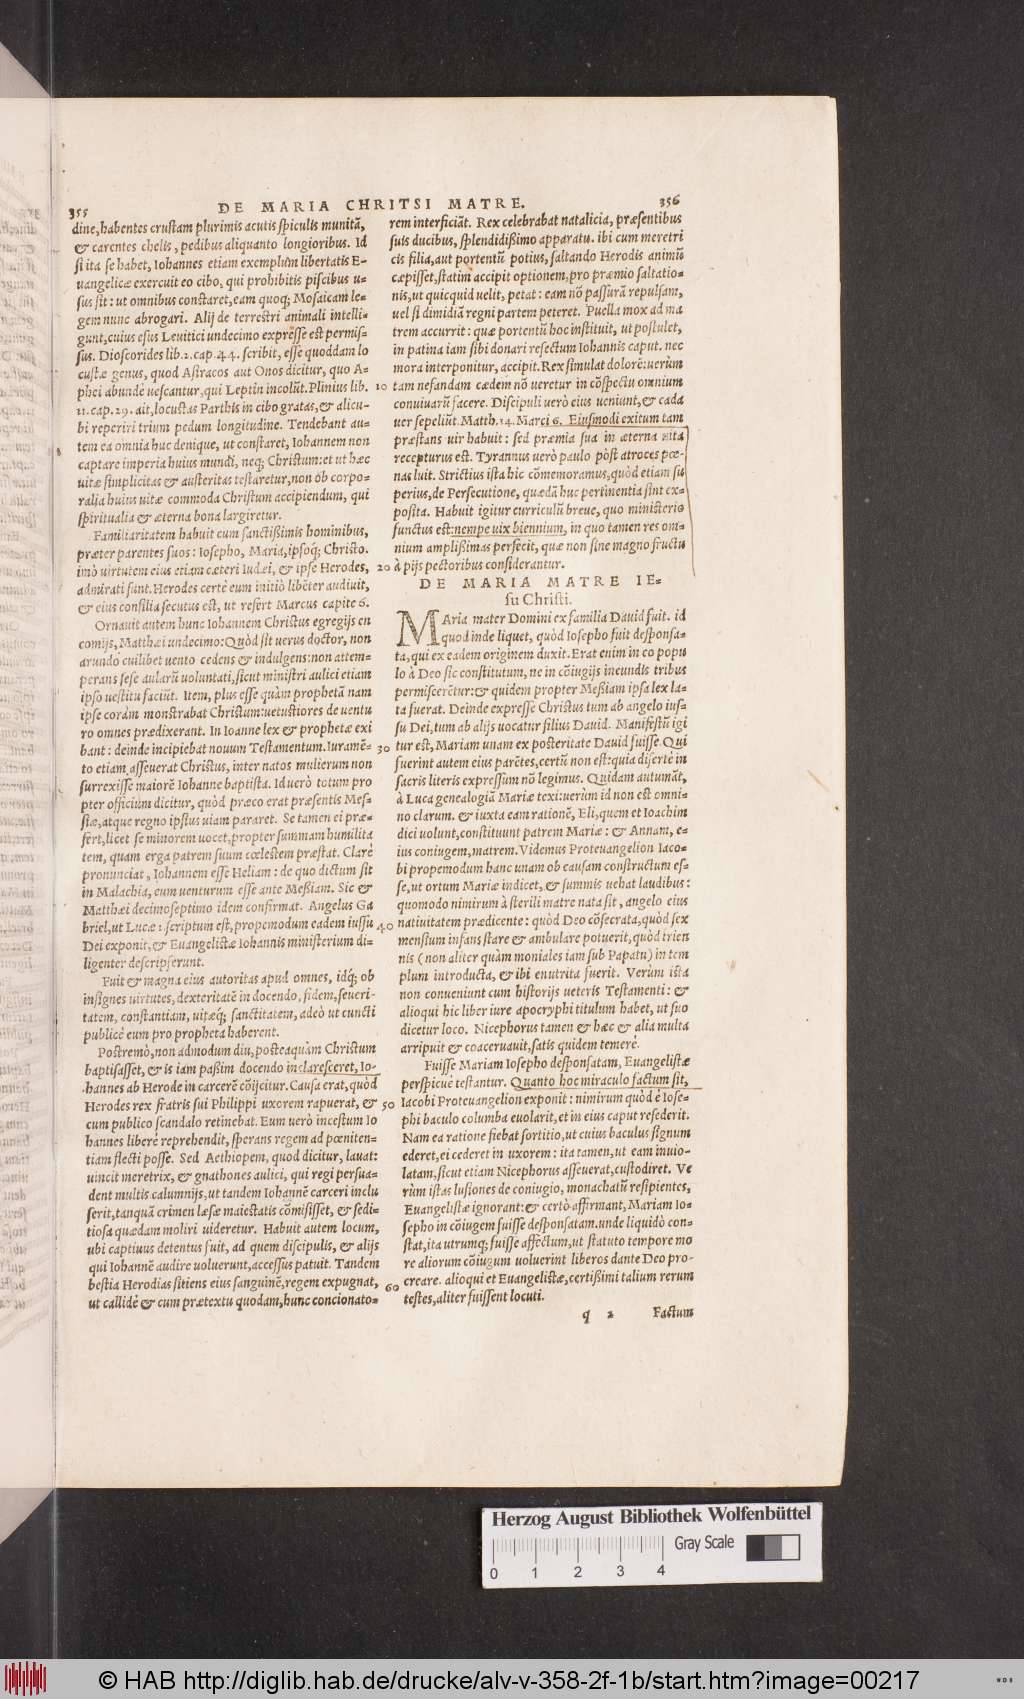 355
DE MARIA CHRITSI MATRE.
356
dine, habentes cruſtam plurimis acutis ſpiculis munitã,
& carentes chelis, pedibus aliquanto longioribus. Id
ſi ita ſe habet, Iohannes etiam exemplum libertatis E-
uangelicæ exercuit eo cibo, qui prohibitis piſcibus u-
ſus ſit: ut omnibus conſtaret, eam quoq; Moſaicam le-
gem nunc abrogari. Alij de terreſtri animali intelli-
gunt, cuius eſus Leuitici undecimo expreſſe eſt permiſ-
ſus. Dioſcorides lib. 2. cap. 44. ſcribit, eſſe quoddam lo
cuſtæ genus, quod Aſtracos aut Onos dicitur, quo A-
phri abundè ueſcantur, qui Leptin incolũt. Plinius lib.
11. cap. 29. ait, locuſtas Parthis in cibo gratas, & alicu-
bi reperiri trium pedum longitudine. Tendebant au-
tem ea omnia huc denique, ut conſtaret, Iohannem non
captare imperia huius mundi, neq; Chriſtum: et ut hæc
uitæ ſimplicitas & auſteritas teſtaretur, non ob corpo-
ralia huius uitæ commoda Chriſtum accipiendum, qui
ſpiritualia & æterna bona largiretur.
Familiaritatem habuit cum ſanctißimis hominibus,
præter parentes ſuos: Ioſepho, Maria, ipſoq; Chriſto.
imò uirtutem eius etiam cæteri Iudæi, & ipſe Herodes,
admirati ſunt. Herodes certè eum initiò libẽter audiuit,
& eius conſilia ſecutus eſt, ut refert Marcus capite 6.
Ornauit autem hunc Iohannem Chriſtus egregijs en
comijs, Matthæi undecimo: Quòd ſit uerus doctor, non
arundo cuilibet uento cedens & indulgens: non attem-
perans ſeſe aularũ uoluntati, ſicut miniſtri aulici etiam
ipſo ueſtitu faciũt. Item, plus eſſe quàm prophetã nam
ipſe coràm monſtrabat Chriſtum: uetuſtiores de ventu
ro omnes prædixerant. In Ioanne lex & prophetæ exi
bant: deinde incipiebat nouum Teſtamentum. Iuramẽ-
to etiam aſſeuerat Chriſtus, inter natos mulierum non
ſurrexiſſe maiorẽ Iohanne baptiſta. Id uerò totum pro
pter officium dicitur, quòd præco erat præſentis Meſ-
ſiæ, atque regno ipſius uiam pararet. Se tamen ei præ-
fert, licet ſe minorem uocet, propter ſummam humilita
tem, quam erga patrem ſuum cœleſtem præſtat. Clarè
pronunciat, Iohannem eſſe Heliam: de quo dictum ſit
in Malachia, eum uenturum eſſe ante Meßiam. Sic &
Matthæi decimoſeptimo idem confirmat. Angelus Ga
briel, ut Lucæ 1. ſcriptum eſt, propemodum eadem iuſſu
Dei exponit, & Euangeliſtæ Iohannis miniſterium di-
ligenter deſcripſerunt.
Fuit & magna eius autoritas apud omnes, idq; ob
inſignes uirtutes, dexteritatẽ in docendo, fidem, ſeueri-
tatem, conſtantiam, uitæq; ſanctitatem, adeò ut cuncti
publicè eum pro propheta haberent.
Poſtremò, non admodum diu, poſteaquàm Chriſtum
baptiſaſſet, & is iam paßim docendo inclareſceret, Io-
hannes ab Herode in carcerẽ cõijcitur. Cauſa erat, quòd
Herodes rex fratris ſui Philippi uxorem rapuerat, &
cum publico ſcandalo retinebat. Eum uerò inceſtum Io
hannes liberè reprehendit, ſperans regem ad pœniten-
tiam flecti poſſe. Sed Aethiopem, quod dicitur, lauat:
uincit meretrix, & gnathones aulici, qui regi perſua-
dent multis calumnijs, ut tandem Iohannẽ carceri inclu
ſerit, tanquã crimen læſæ maieſtatis cõmiſiſſet, & ſedi-
tioſa quædam moliri uideretur. Habuit autem locum,
ubi captiuus detentus fuit, ad quem diſcipulis, & alijs
qui Iohannẽ audire uoluerunt, acceſſus patuit. Tandem
beſtia Herodias ſitiens eius ſanguinẽ, regem expugnat,
ut callidè & cum prætextu quodam, hunc concionato-
10
20
30
40
50
60
rem interficiãt. Rex celebrabat natalicia, præſentibus
ſuis ducibus, ſplendidißimo apparatu. ibi cum meretri
cis filia, aut portentũ potius, ſaltando Herodis animũ
cæpiſſet, ſtatim accipit optionem, pro præmio ſaltatio-
nis, ut quicquid uelit, petat: eam nõ paſſurã repulſam,
uel ſi dimidiã regni partem peteret. Puella mox ad ma
trem accurrit: quæ portentũ hoc inſtituit, ut poſtulet,
in patina iam ſibi donari reſectum Iohannis caput. nec
mora interponitur, accipit. Rex ſimulat dolorẽ: uerùm
tam nefandam cædem nõ ueretur in cõſpectu omnium
conuiuarũ facere. Diſcipuli uerò eius ueniunt, & cada
uer ſepeliũt. Matth. 14. Marci 6. Eiuſmodi exitum tam
præſtans uir habuit: ſed præmia ſua in æterna uita
recepturus eſt. Tyrannus uerò paulo pòſt atroces pœ-
nas luit. Strictius iſta hic cõmemoramus, quòd etiam ſu
perius, de Perſecutione, quædã huc pertinentia ſint ex-
poſita. Habuit igitur curriculũ breue, quo miniſterio
functus eſt: nempe uix biennium, in quo tamen res om-
nium amplißimas perfecit, quæ non ſine magno fructu
à pijs pectoribus conſiderantur.
DE MARIA MATRE IE-
ſu Chriſti.
MAria mater Domini ex familia Dauid fuit. id
quod inde liquet, quòd Ioſepho fuit deſponſa-
ta, qui ex eadem originem duxit. Erat enim in eo popu
lo à Deo ſic conſtitutum, ne in cõiugijs ineundis tribus
permiſcerẽtur: & quidem propter Meßiam ipſa lex la-
ta fuerat. Deinde expreſſe Chriſtus tum ab angelo iuſ-
ſu Dei, tum ab alijs uocatur filius Dauid. Manifeſtũ igi
tur eſt, Mariam unam ex poſteritate Dauid fuiſſe. Qui
fuerint autem eius parẽtes, certũ non eſt: quia diſertè in
ſacris literis expreſſum nõ legimus. Quidam autumãt,
à Luca genealogiã Mariæ texi: uerùm id non eſt omni-
no clarum. & iuxta eam rationẽ, Eli, quem et Ioachim
dici uolunt, conſtituunt patrem Mariæ: & Annam, e-
ius coniugem, matrem. Videmus Proteuangelion Iaco-
bi propemodum hanc unam ob cauſam conſtructum eſ-
ſe, ut ortum Mariæ indicet, & ſummis uehat laudibus:
quomodo nimirum à ſterili matre nata ſit, angelo eius
natiuitatem prædicente: quòd Deo cõſecrata, quòd ſex
menſium infans ſtare & ambulare potuerit, quòd trien
nis (non aliter quàm moniales iam ſub Papatu) in tem
plum introducta, & ibi enutrita fuerit. Verùm iſta
non conueniunt cum hiſtorijs ueteris Teſtamenti: &
alioqui hic liber iure apocryphi titulum habet, ut ſuo
dicetur loco. Nicephorus tamen & hæc & alia multa
arripuit & coaceruauit, ſatis quidem temerè.
Fuiſſe Mariam Ioſepho deſponſatam, Euangeliſtæ
perſpicuè teſtantur. Quanto hoc miraculo factum ſit,
Iacobi Proteuangelion exponit: nimirum quòd è Ioſe-
phi baculo columba euolarit, et in eius caput reſederit.
Nam ea ratione fiebat ſortitio, ut cuius baculus ſignum
ederet, ei cederet in uxorem: ita tamen, ut eam inuio-
latam, ſicut etiam Nicephorus aſſeuerat, cuſtodiret. Ve
rùm iſtas luſiones de coniugio, monachatũ reſipientes,
Euangeliſtæ ignorant: & certò affirmant, Mariam Io-
ſepho in cõiugem fuiſſe deſponſatam. unde liquidò con-
ſtat, ita utrumq; fuiſſe affectum, ut ſtatuto tempore mo
re aliorum cõiugum uoluerint liberos dante Deo pro-
creare. alioqui et Euangeliſtæ, certißimi talium rerum
teſtes, aliter fuiſſent locuti.
q 2 Factum
Herzog August Bibliothek Wolfenbüttel
Gray Scale
0 1 2 3 4
© HAB http://diglib.hab.de/drucke/alv-v-358-2f-1b/start.htm?image=00217